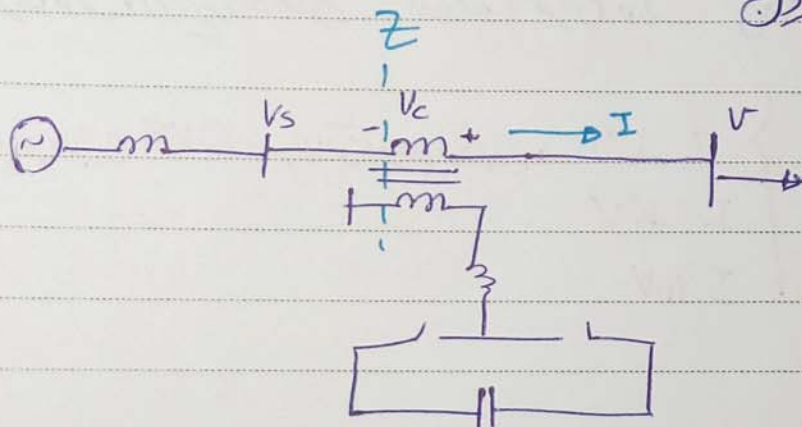 Z
Vs
- Vc +
I
V
~